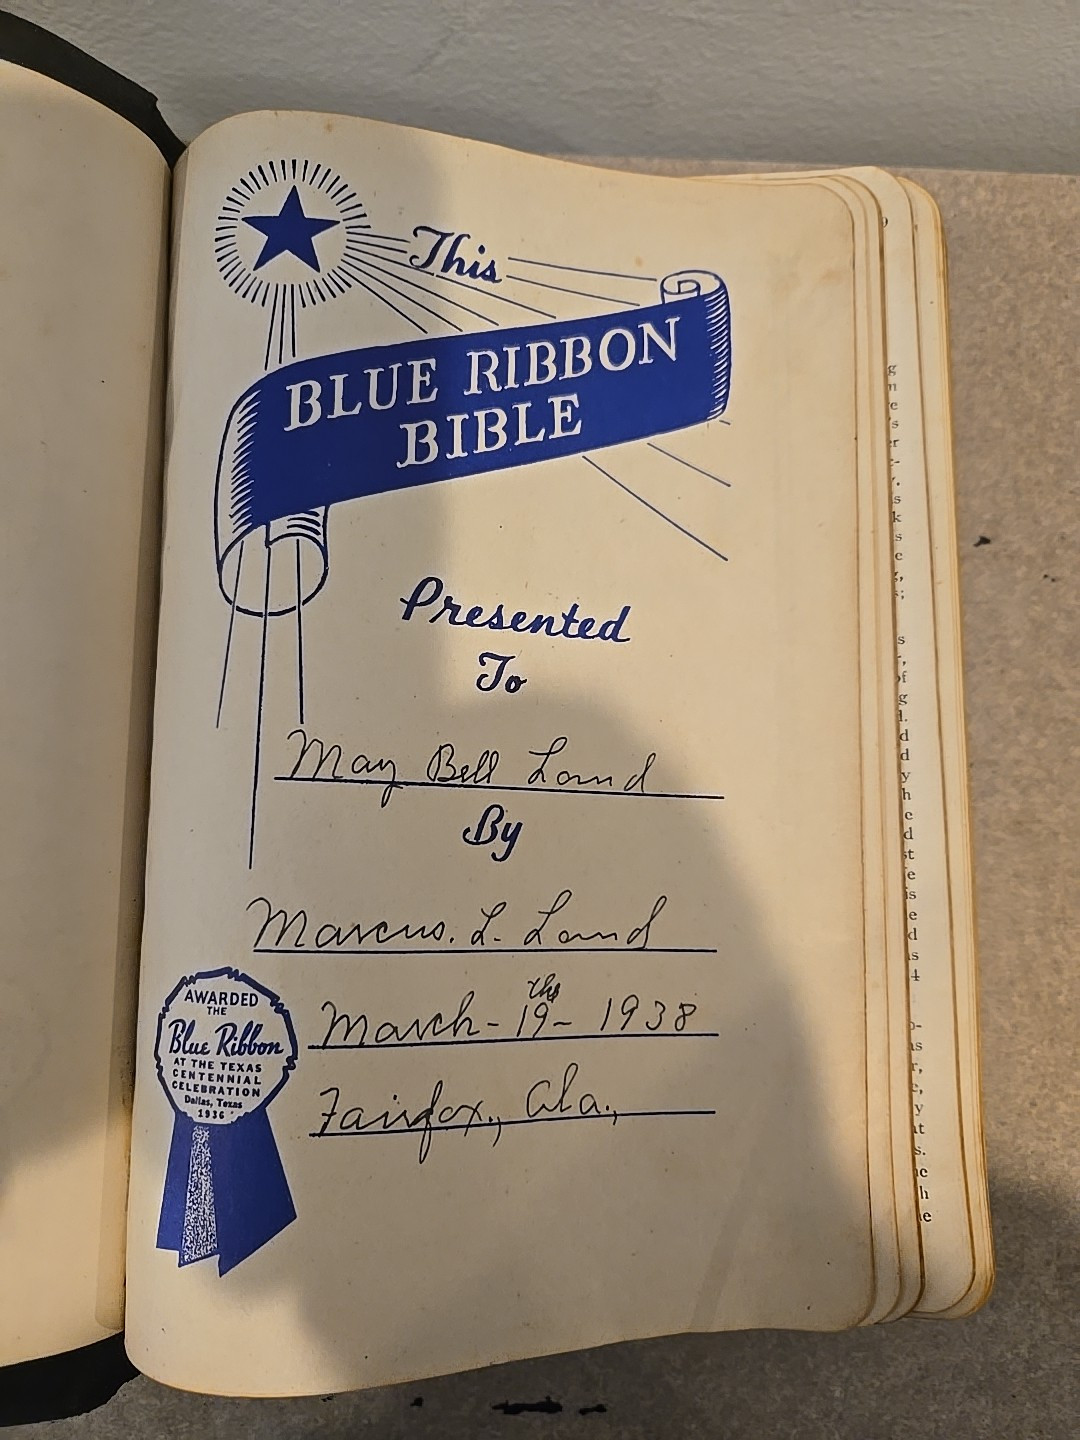 This
BLUE RIBBON
BIBLE
Presented
To
May Bell Land
By
Marcus. L. Land
March - 19ths - 1938
Fairfox., Ala.,
AWARDED
THE
Blue Ribbon
AT THE TEXAS
CENTENNIAL
CELEBRATION
Dallas, Texas
1936